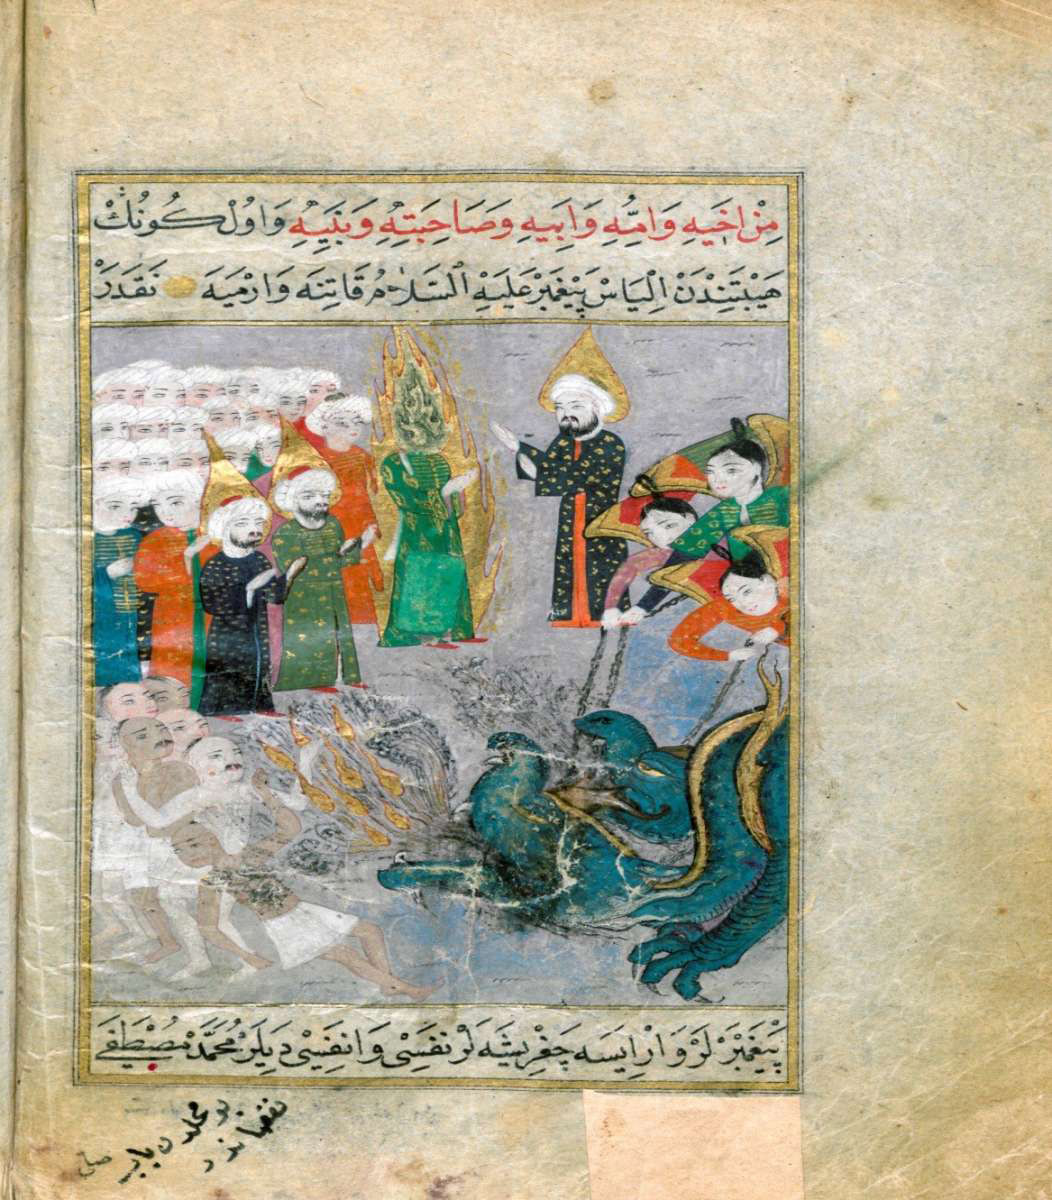 مِنْ اَخٖيهِ وَاُمِّهِ وَاَبٖيهِ وَصَاحِبَتِهِ وَبَنٖيهِ وَاوُلْ كُونُكْ
هَيْبَتِنْدَنْ اِلْيَاسْ پَيْغَمْبَرْ عَلَيْهِ السَّلَامُ قَاتِنَه وَارْمَيَه نَقَدَرْ
پَيْغَمْبَرْ لَرْ وَارْ اِيسَه چَغْرِيشَه لَرْ نَفْسٖى وَانَفْسٖى دِيَلَرْ مُحَمَّدْ مُصْطَفَى
بو محلدن